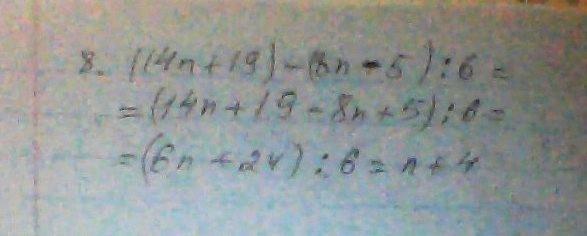 8. ((14n+19)-(8n-5):6=
=(14n+19-8n+5):6=
=(6n+24):6=n+4